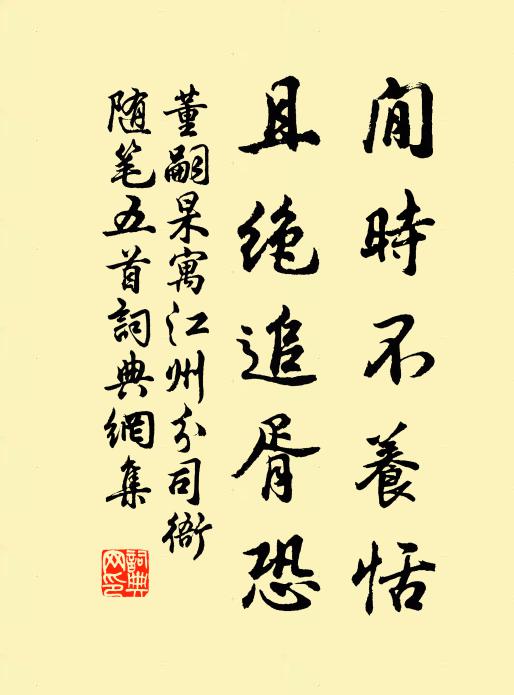 閒時不養恬
且绝追胥恐
董嗣杲寓江州分司衙
随笔五首詞典網集
詞典
网印